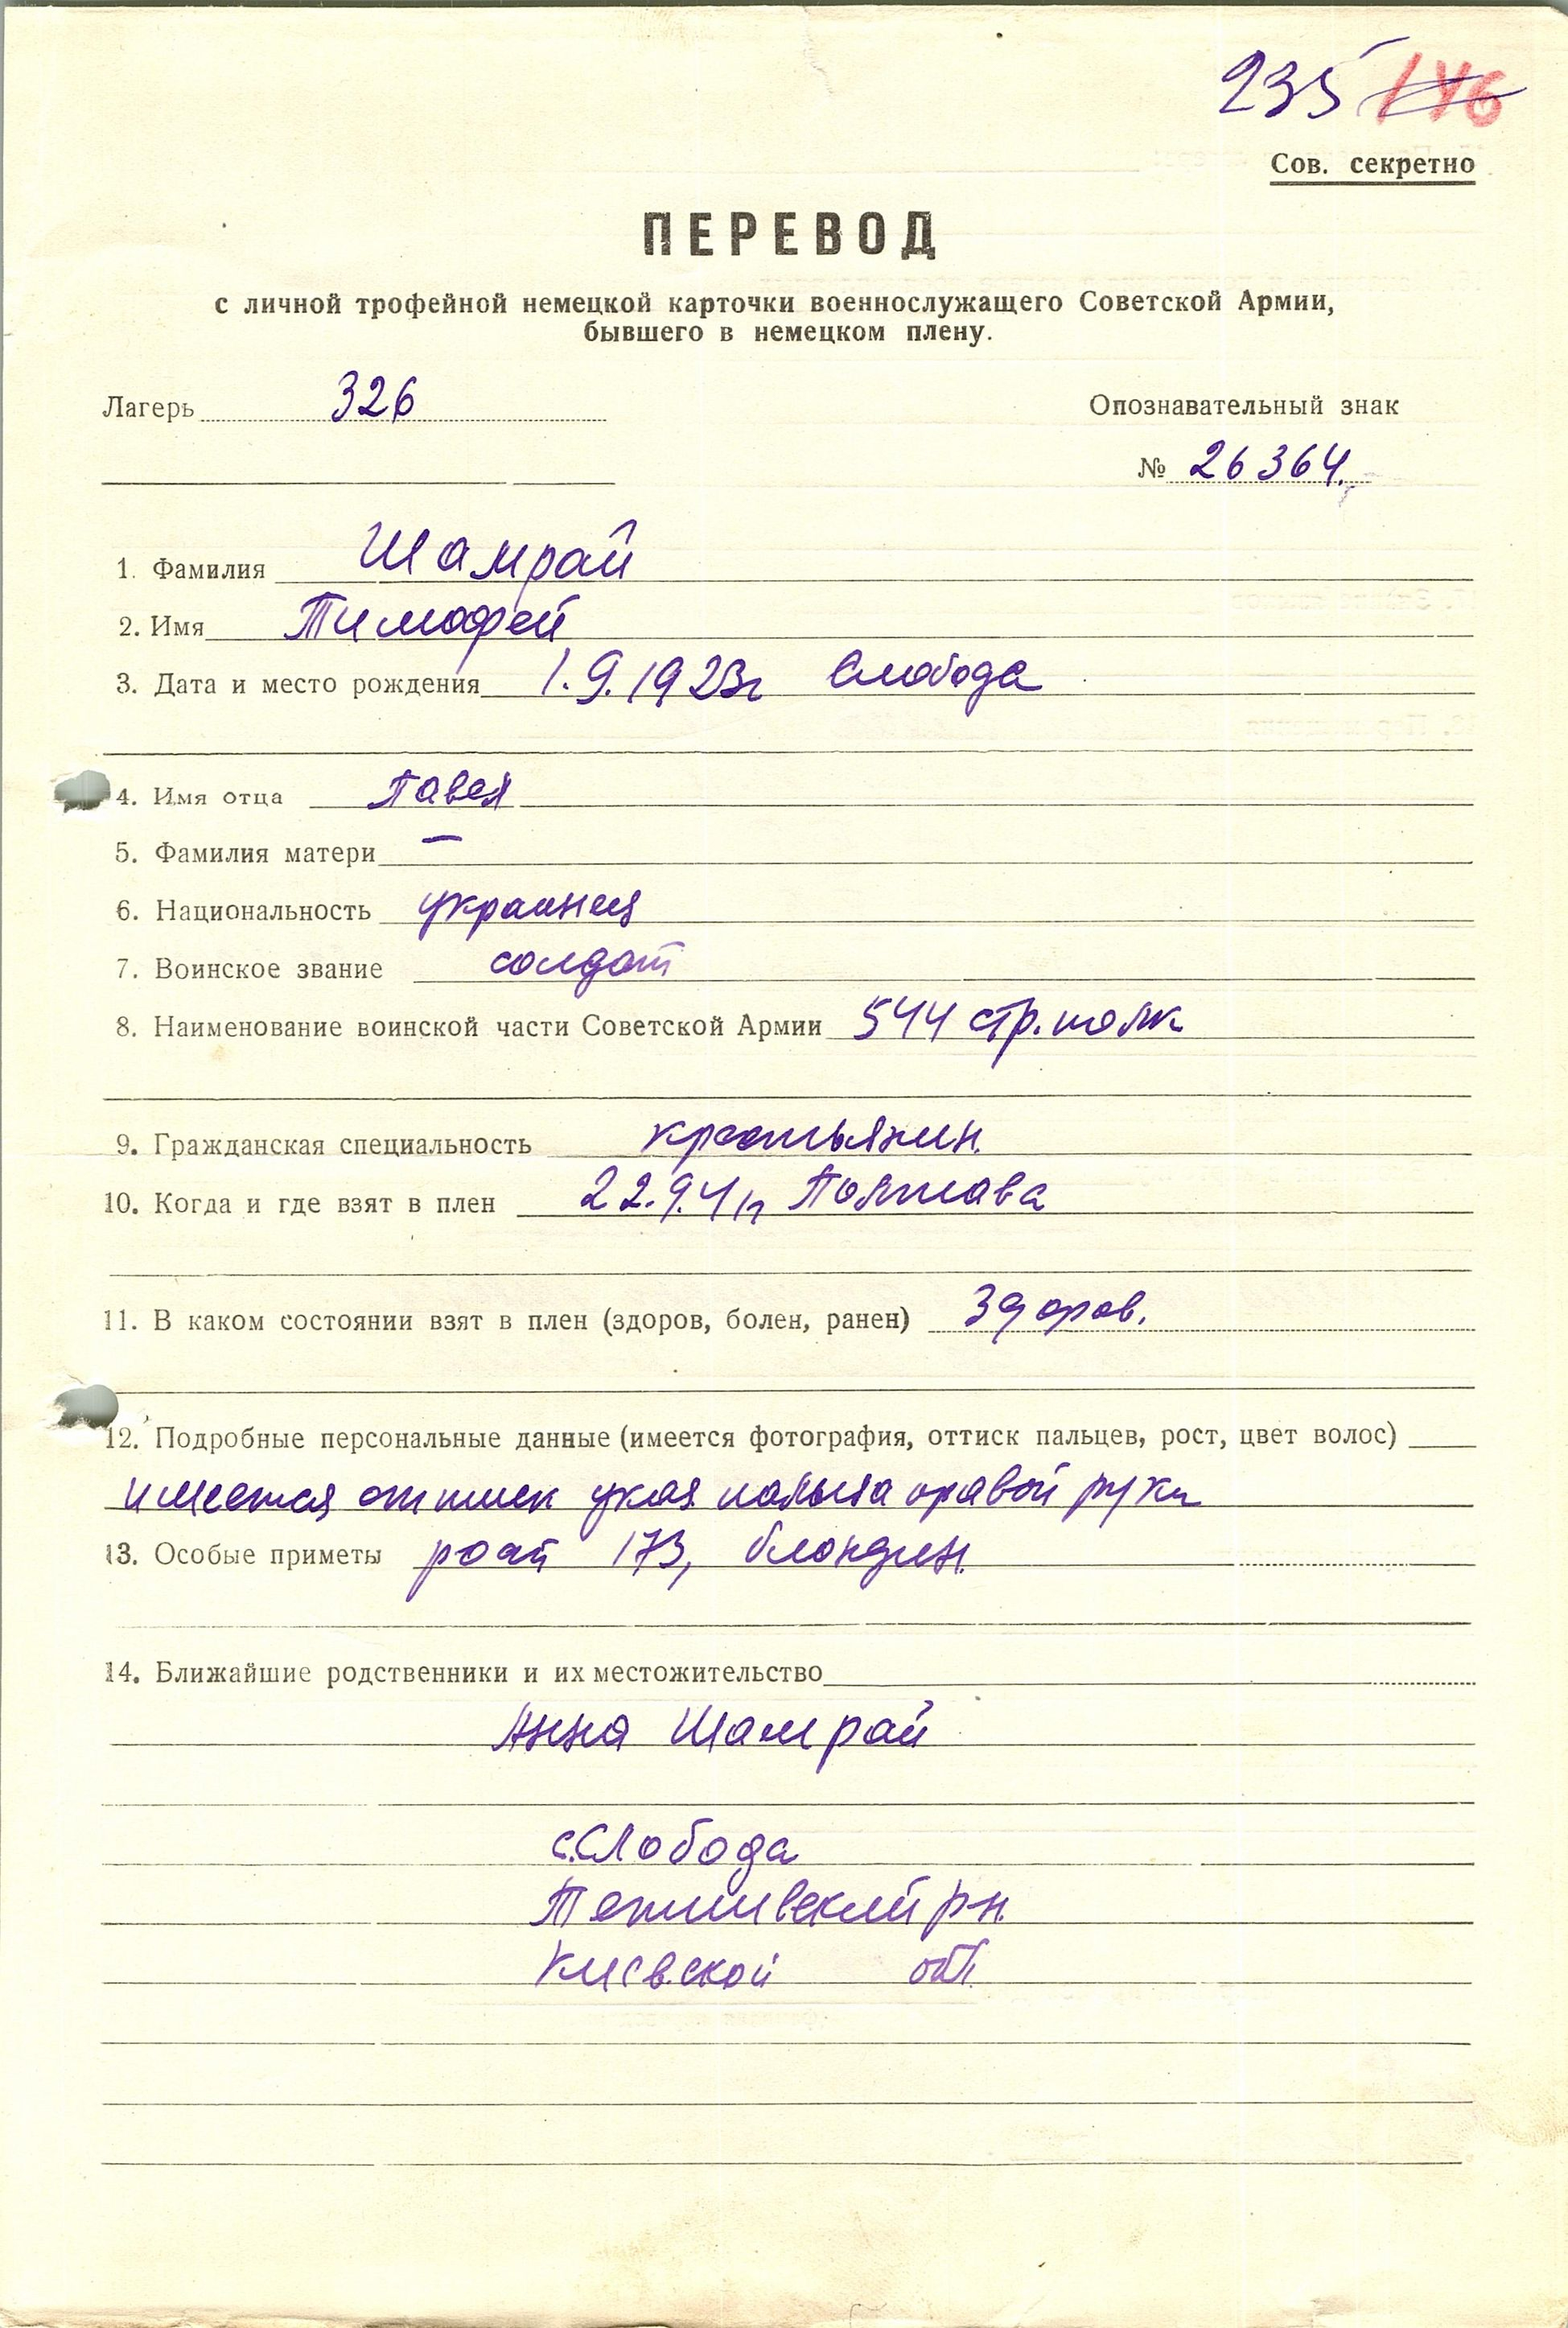 235 146
Сов. секретно
ПЕРЕВОД
с личной трофейной немецкой карточки военнослужащего Советской Армии,
бывшего в немецком плену.
Лагерь 326
Опознавательный знак
№ 26364.
1. Фамилия Шамрай
2. Имя Тимофей
3. Дата и место рождения 1.9.1923г Слобода
4. Имя отца Павел
5. Фамилия матери —
6. Национальность украинец
7. Воинское звание солдат
8. Наименование воинской части Советской Армии 544 стр. полк
9. Гражданская специальность крестьянин.
10. Когда и где взят в плен 22.9.41г Полтава
11. В каком состоянии взят в плен (здоров, болен, ранен) здоров.
12. Подробные персональные данные (имеется фотография, оттиск пальцев, рост, цвет волос)
имеется оттиск указ. пальца правой руки
13. Особые приметы рост 173, блондин.
14. Ближайшие родственники и их местожительство
Анна Шамрай
с. Слобода
рн.
Киевской обл.